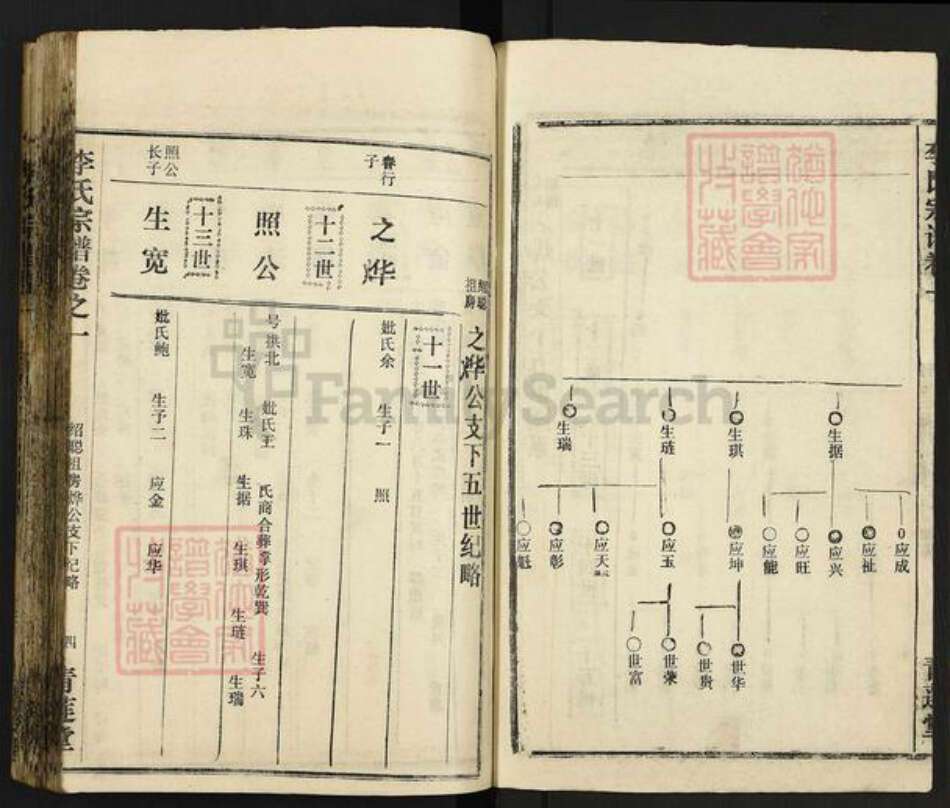 生据
生琪
生琏
生瑞
应成
应祉
应兴
应旺
应能
应坤
应玉
应天
应彰
应魁
世华
世贵
世荣
世富
之烨公支下五世纪略
十一世
行
子
之烨
妣氏余 生子一 照
十二世
照公
号洪北 妣氏王 氏商合葬掌形乾巽 生子六
生宽 生珠 生据 生琪 生琏 生瑞
十三世
照公
长子
生宽
妣氏鲍 生子二 应金 应华
李氏宗谱卷之一
绍聪祖房烨公支下纪略
四
青莲堂
FamilySearch